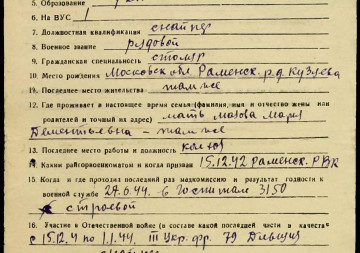 5. Образование
6. На ВУС 1
7. Должностная квалификация снайпер
8. Военное звание рядовой
9. Гражданская специальность столяр
10. Место рождения Московск обл. Раменск. р.д
11. Последнее место жительства там же
12. Где проживает в настоящее время семья (фамилия, имя и отчество жены или
родителей и точный их адрес) мать Мария
Дементьевна – там же
13. Последнее место работы и должность
Каким райгорвоенкоматом и когда призван 15.12.42 Раменск. РВК
15. Когда и где проходил последний раз медкомиссию и результат годности к
военной службе 27.6.44. в Госпитале 3150
строевой
16. Участие в Отечественной войне (в составе какой последней части и в качестве
с 15.12.4 по 1.1.44. III Укр. фр. 79